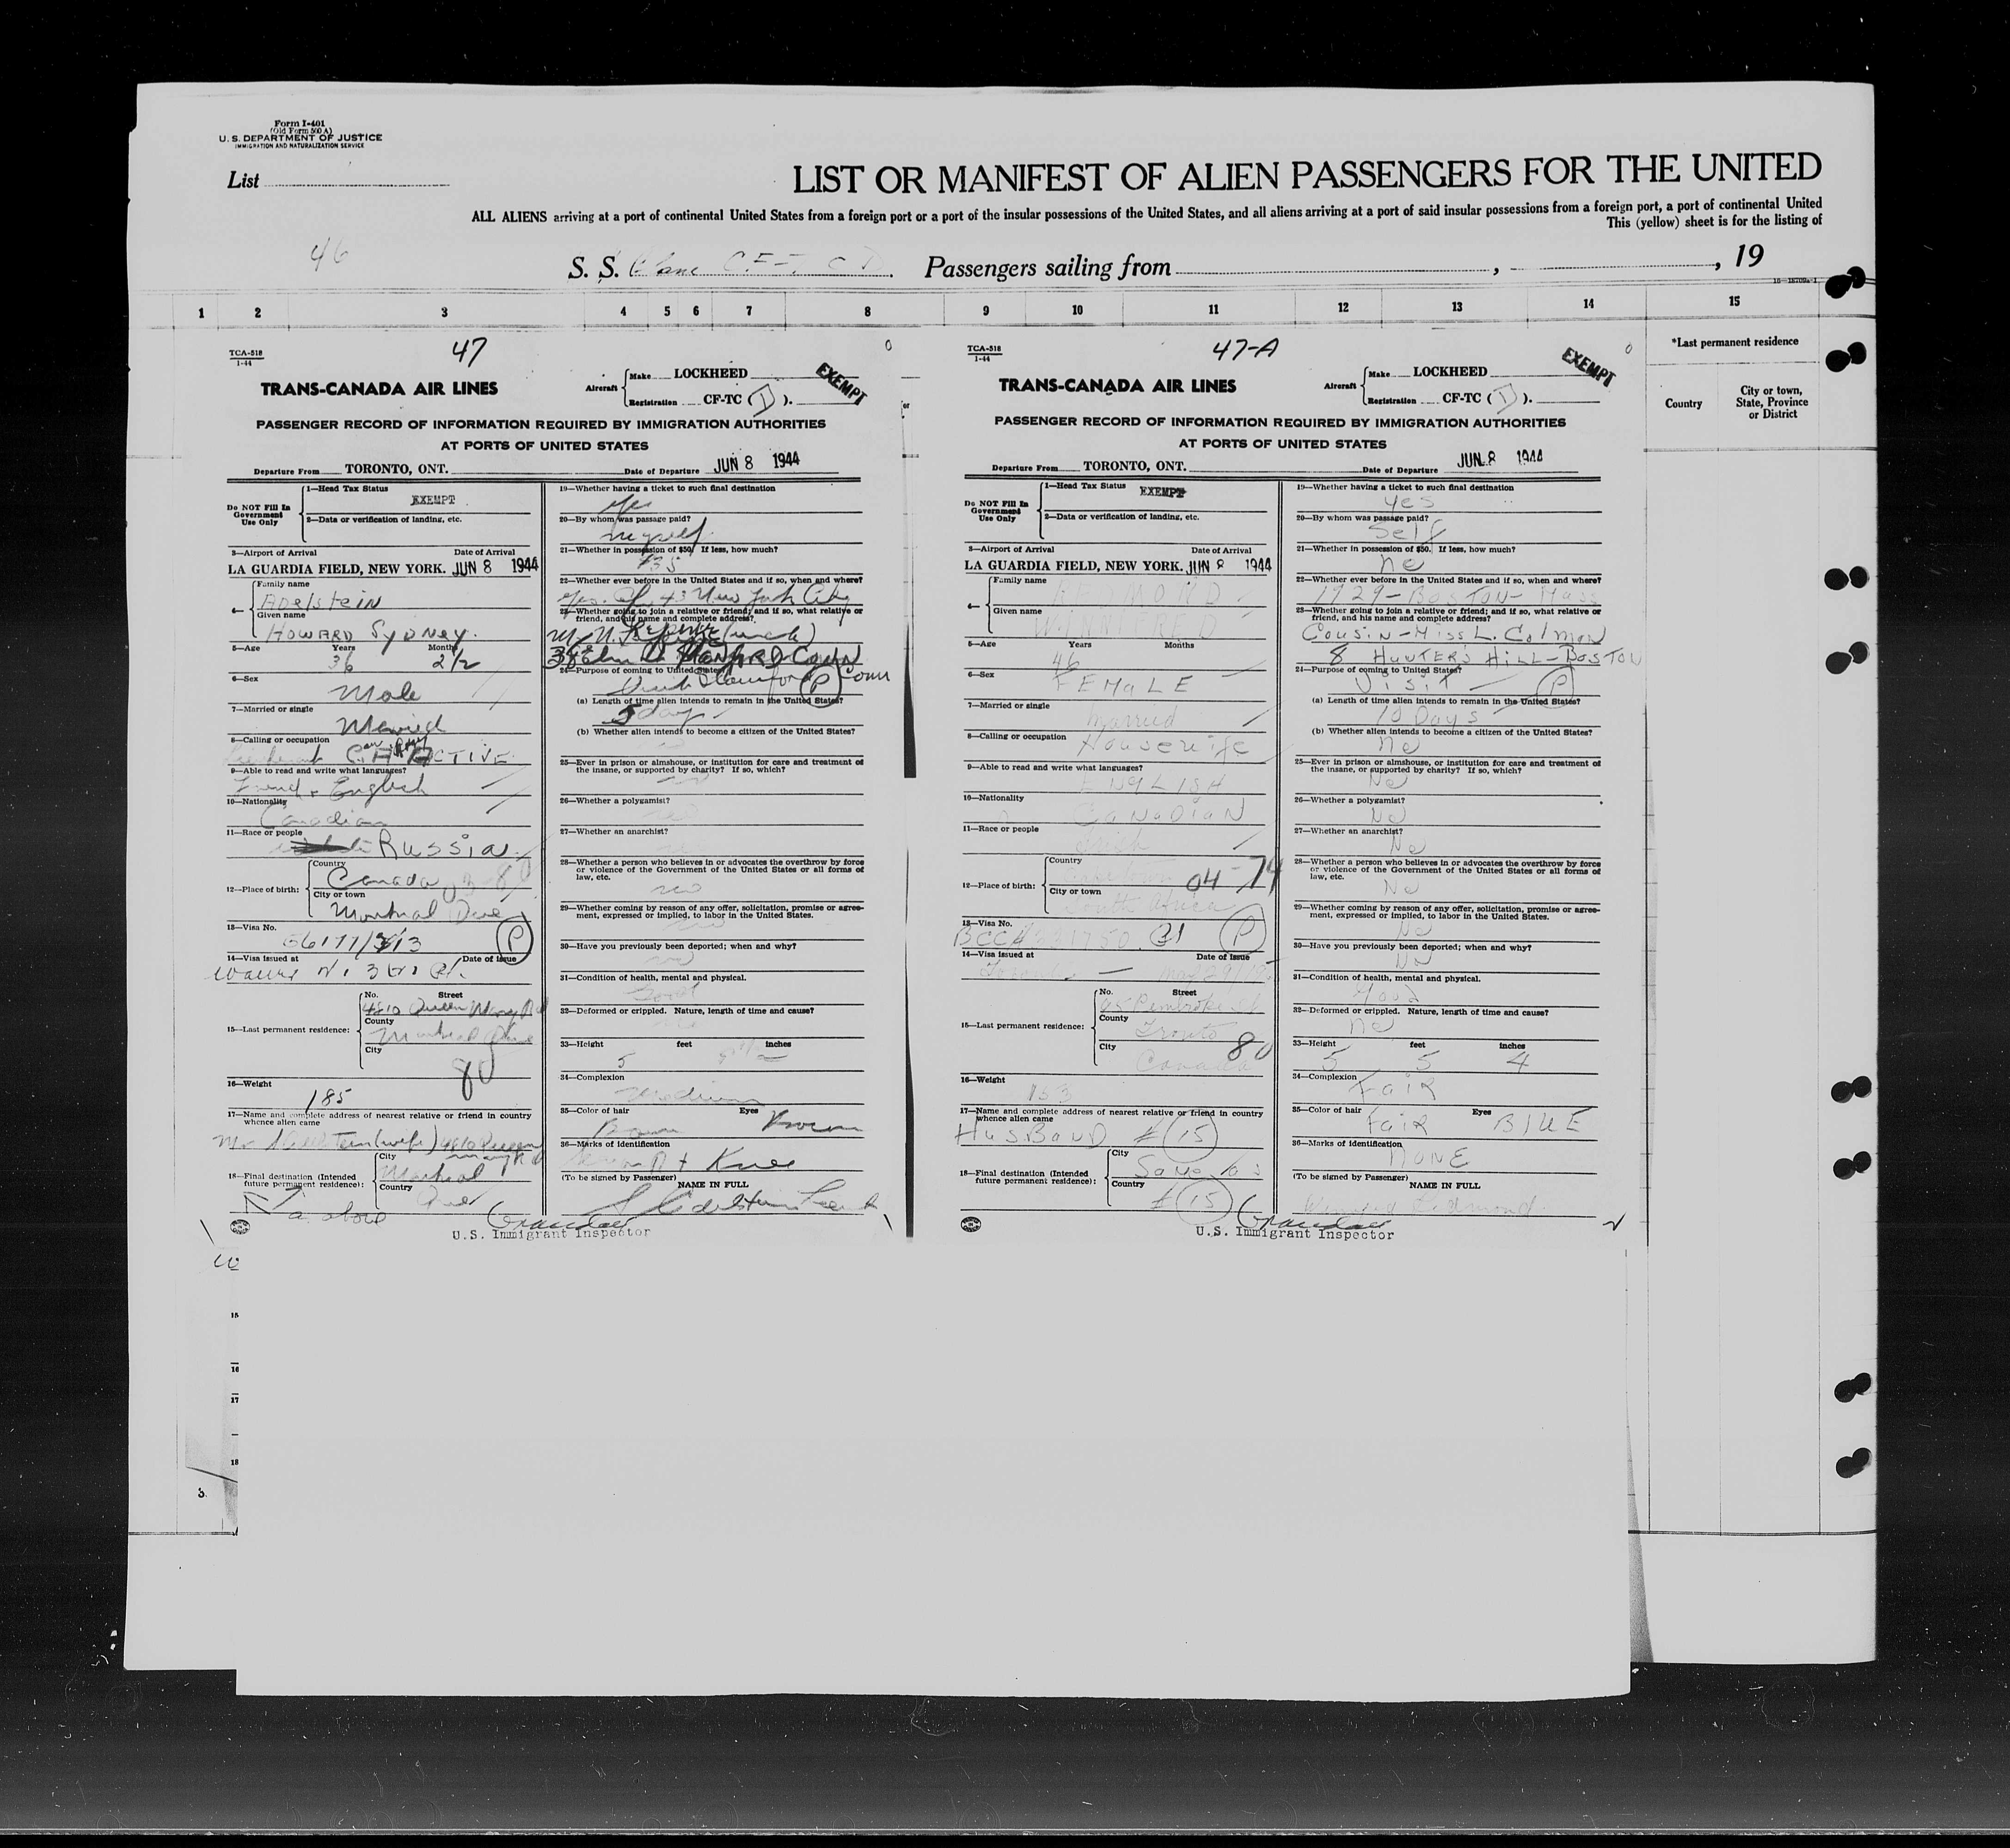 Form I-401
(Old Form 500 A)
U. S. DEPARTMENT OF JUSTICE
IMMIGRATION AND NATURALIZATION SERVICE
List
LIST OR MANIFEST OF ALIEN PASSENGERS FOR THE UNITED
ALL ALIENS arriving at a port of continental United States from a foreign port or a port of the insular possessions of the United States, and all aliens arriving at a port of said insular possessions from a foreign port, a port of continental United
This (yellow) sheet is for the listing of
46
S. S. Plane Passengers sailing from , , 19
1 2 3 4 5 6 7 8 9 10 11 12 13 14 15
*Last permanent residence
Country
City or town, State, Province or District
TCA-518
1-44
47
TRANS-CANADA AIR LINES
Aircraft
Make LOCKHEED
Registration CF-TC ( I ).
EXEMPT
PASSENGER RECORD OF INFORMATION REQUIRED BY IMMIGRATION AUTHORITIES
AT PORTS OF UNITED STATES
Departure From TORONTO, ONT. Date of Departure JUN 8 1944
Do NOT Fill In Government Use Only
1—Head Tax Status EXEMPT
2—Data or verification of landing, etc.
3—Airport of Arrival Date of Arrival
LA GUARDIA FIELD, NEW YORK. JUN 8 1944
4— Family name
Adelstein
Given name
HOWARD SYDNEY.
5—Age Years Months
36 2 1/2
6—Sex
Male
7—Married or single
Married
8—Calling or occupation
ACTIVE
9—Able to read and write what languages?
French + English
10—Nationality
Canadian
11—Race or people
Russia
12—Place of birth: Country
Canada 03-80
City or town
Montreal Que
13—Visa No.
(P)
14—Visa issued at Date of Issue
15—Last permanent residence: No. Street
4810 Queen Mary Rd
County
Montreal Que
City
80
16—Weight
185
17—Name and complete address of nearest relative or friend in country whence alien came
Adelstein (wife) 4810 Queen
Mary Rd
18—Final destination (Intended future permanent residence): City
Montreal
Country
Que
as above
19—Whether having a ticket to such final destination
yes
20—By whom was passage paid?
myself
21—Whether in possession of $50. If less, how much?
$35
22—Whether ever before in the United States and if so, when and where?
yes. 43 New York City
23—Whether going to join a relative or friend; and if so, what relative or friend, and his name and complete address?
(uncle)
STAMFORD CONN
24—Purpose of coming to United States?
Visit Stamford Conn (P)
(a) Length of time alien intends to remain in the United States?
5 days
(b) Whether alien intends to become a citizen of the United States?
25—Ever in prison or almshouse, or institution for care and treatment of the insane, or supported by charity? If so, which?
26—Whether a polygamist?
27—Whether an anarchist?
28—Whether a person who believes in or advocates the overthrow by force or violence of the Government of the United States or all forms of law, etc.
no
29—Whether coming by reason of any offer, solicitation, promise or agreement, expressed or implied, to labor in the United States.
no
30—Have you previously been deported; when and why?
no
31—Condition of health, mental and physical.
Good
32—Deformed or crippled. Nature, length of time and cause?
no
33—Height feet inches
5
34—Complexion
Medium
35—Color of hair Eyes
Brown Brown
36—Marks of identification
Rt Knee
(To be signed by Passenger)
NAME IN FULL
U.S. Immigrant Inspector
TCA-518
1-44
47-A
TRANS-CANADA AIR LINES
Aircraft
Make LOCKHEED
Registration CF-TC ( I ).
EXEMPT
PASSENGER RECORD OF INFORMATION REQUIRED BY IMMIGRATION AUTHORITIES
AT PORTS OF UNITED STATES
Departure From TORONTO, ONT. Date of Departure JUN 8 1944
Do NOT Fill In Government Use Only
1—Head Tax Status EXEMPT
2—Data or verification of landing, etc.
3—Airport of Arrival Date of Arrival
LA GUARDIA FIELD, NEW YORK. JUN 8 1944
4— Family name
REDMOND
Given name
WINIFRED
5—Age Years Months
46
6—Sex
FEMALE
7—Married or single
Married
8—Calling or occupation
Housewife
9—Able to read and write what languages?
ENGLISH
10—Nationality
CANADIAN
11—Race or people
Irish
12—Place of birth: Country
Cape Town 04-74
City or town
South Africa
13—Visa No.
(P)
14—Visa issued at Date of Issue
Toronto — May 29/
15—Last permanent residence: No. Street
Pembroke St
County
Toronto
City
Canada 80
16—Weight
153
17—Name and complete address of nearest relative or friend in country whence alien came
HUSBAND # (15)
18—Final destination (Intended future permanent residence): City
Same as
Country
# (15)
19—Whether having a ticket to such final destination
yes
20—By whom was passage paid?
Self
21—Whether in possession of $50. If less, how much?
no
22—Whether ever before in the United States and if so, when and where?
1929-BOSTON-Mass
23—Whether going to join a relative or friend; and if so, what relative or friend, and his name and complete address?
Cousin-Miss L. Colman
8 HUNTER'S HILL-BOSTON
24—Purpose of coming to United States?
Visit (P)
(a) Length of time alien intends to remain in the United States?
10 Days
(b) Whether alien intends to become a citizen of the United States?
no
25—Ever in prison or almshouse, or institution for care and treatment of the insane, or supported by charity? If so, which?
No
26—Whether a polygamist?
No
27—Whether an anarchist?
No
28—Whether a person who believes in or advocates the overthrow by force or violence of the Government of the United States or all forms of law, etc.
No
29—Whether coming by reason of any offer, solicitation, promise or agreement, expressed or implied, to labor in the United States.
No
30—Have you previously been deported; when and why?
No
31—Condition of health, mental and physical.
Good
32—Deformed or crippled. Nature, length of time and cause?
no
33—Height feet inches
5 5 4
34—Complexion
FAIR
35—Color of hair Eyes
FAIR BLUE
36—Marks of identification
NONE
(To be signed by Passenger)
NAME IN FULL
Winifred Redmond
U.S. Immigrant Inspector
15
16
17
18
3.